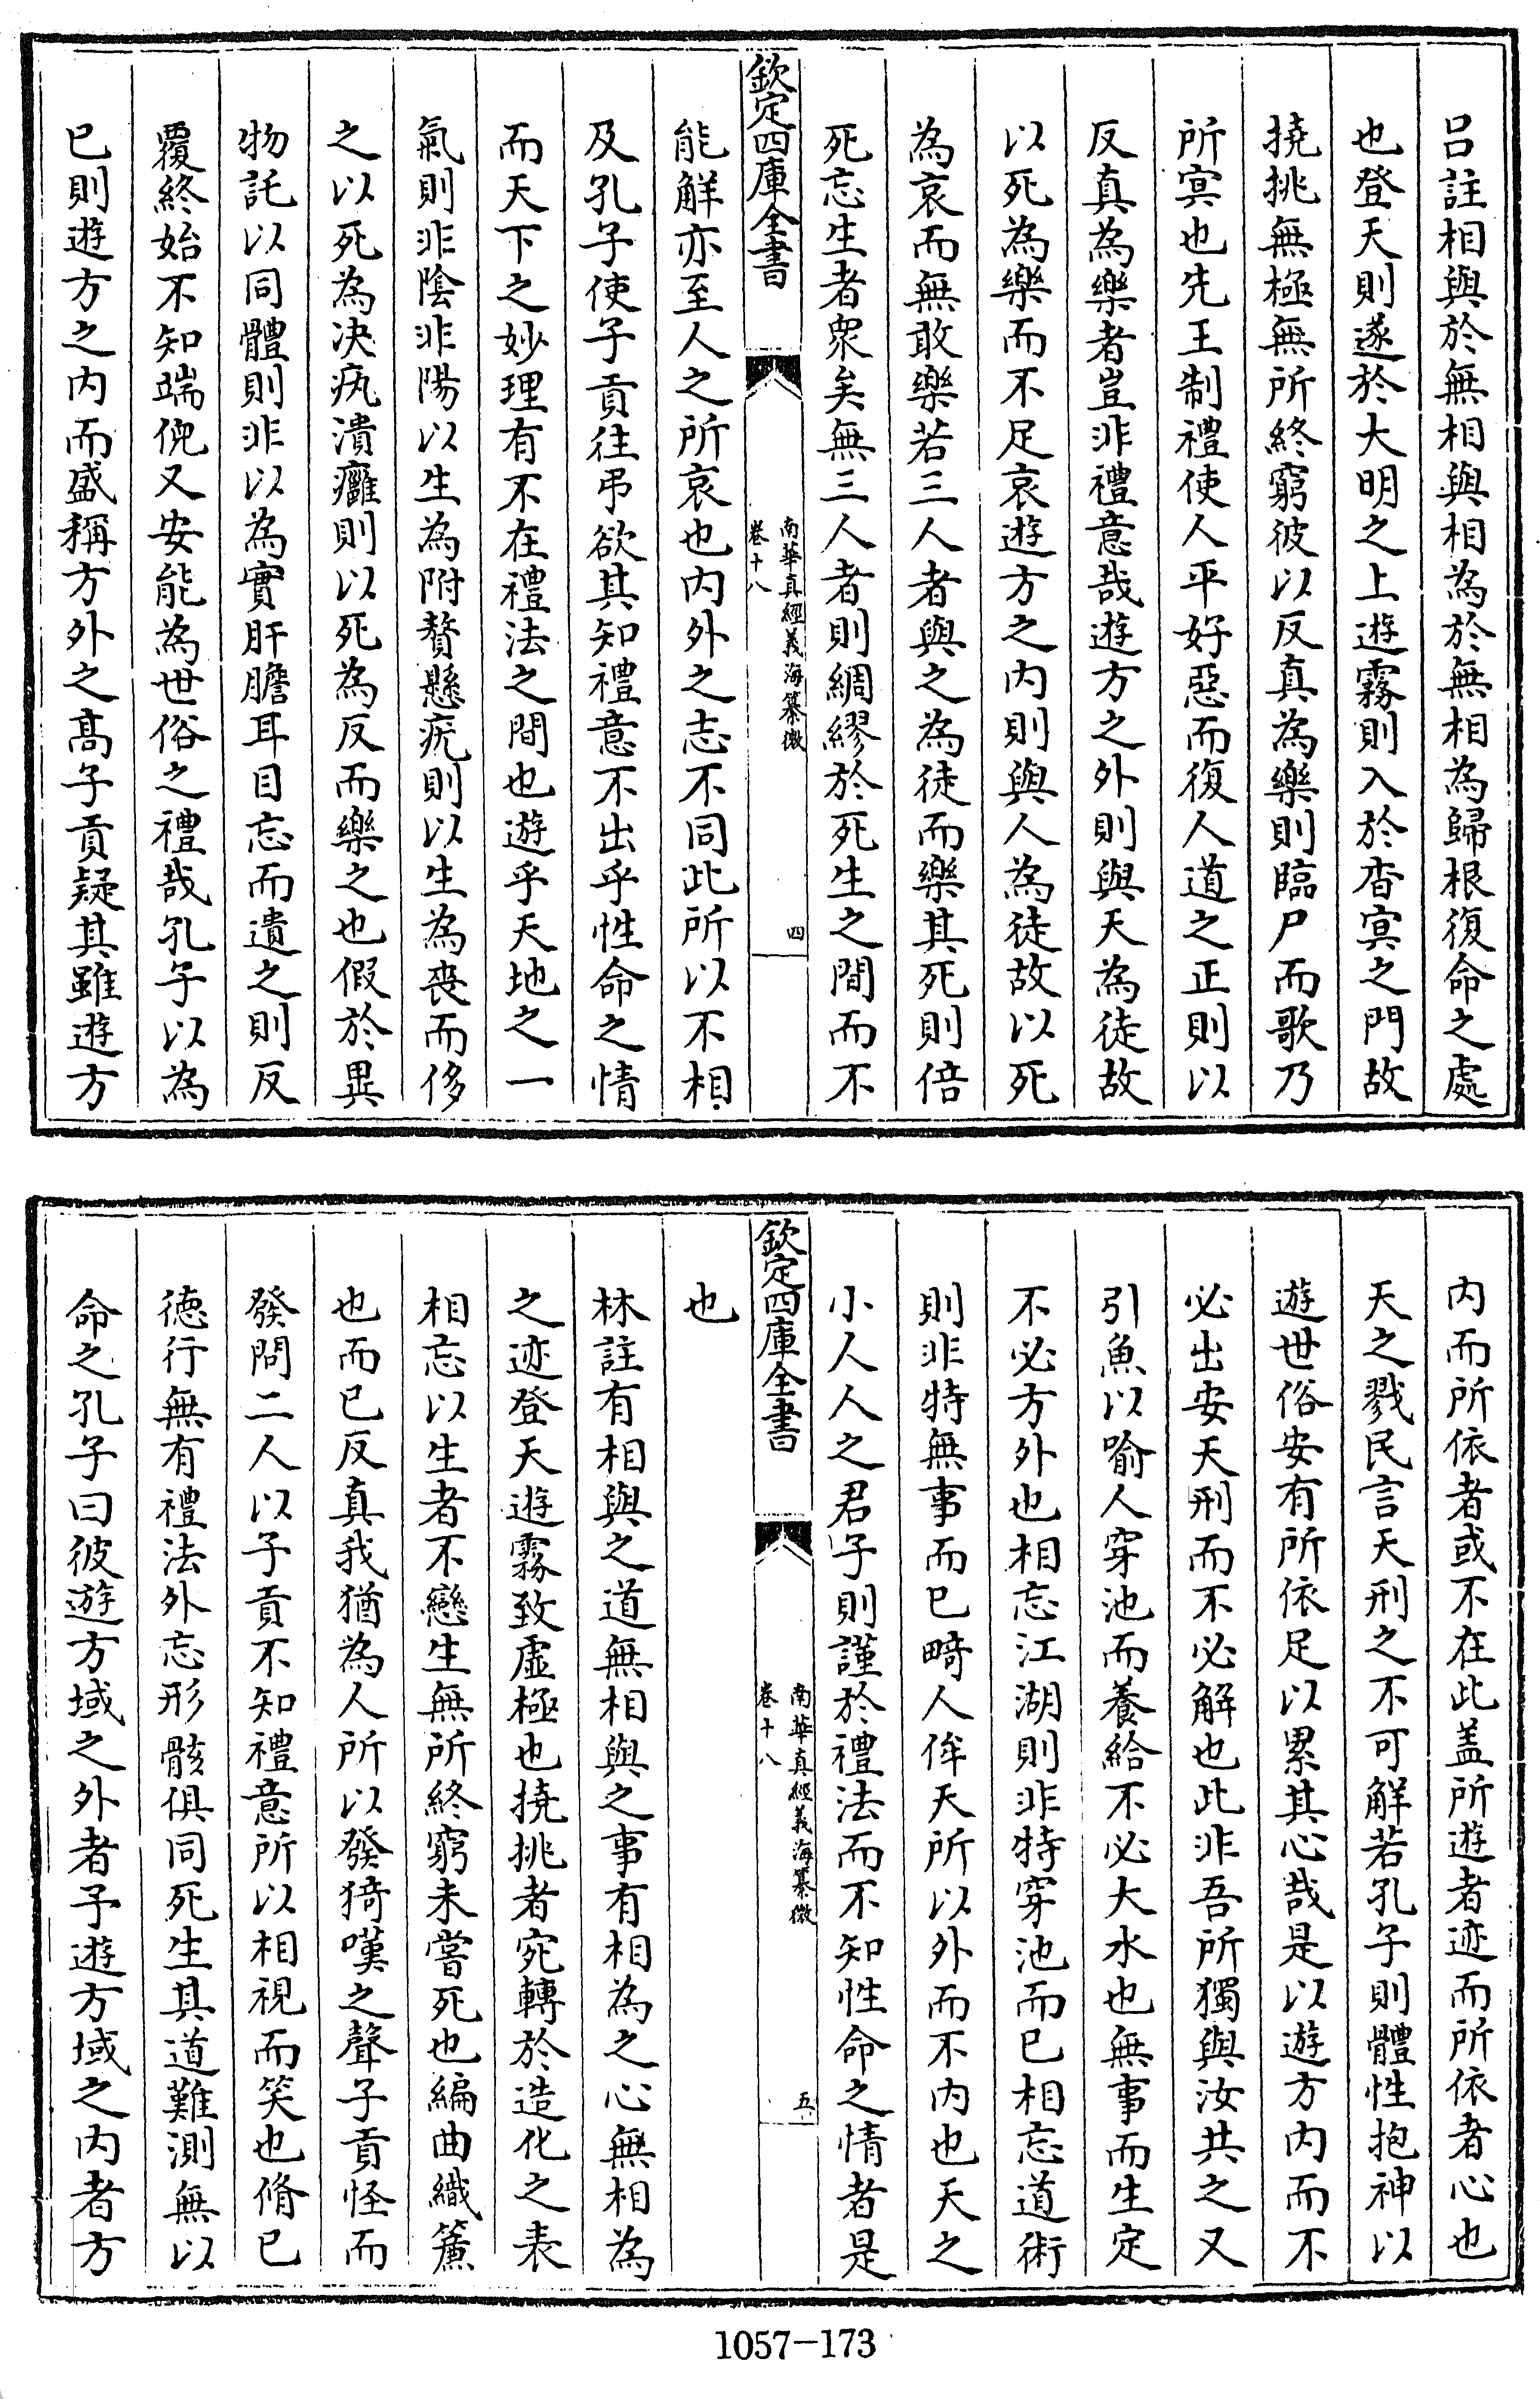 呂註相與於無相與相為於無相為歸根復命之處
也登天則遂於大明之上遊霧則入於杳冥之門故
撓挑無極無所終窮彼以反真為樂則臨尸而歌乃
所冥也先王制禮使人平好惡而復人道之正則以
反真為樂者豈非禮意哉遊方之外則與天為徒故
以死為樂而不足哀遊方之内則與人為徒故以死
為哀而無敢樂若三人者與之為徒而樂其死則倍
死忘生者衆矣無三人者則綢繆於死生之間而不
欽定四庫全書
南華真經義海纂微
卷十八
四
能解亦至人之所哀也内外之志不同此所以不相
及孔子使子貢往弔欲其知禮意不出乎性命之情
而天下之妙理有不在禮法之間也遊乎天地之一
氣則非陰非陽以生為附贅懸疣則以生為喪而侈
之以死為决疚潰癰則以死為反而樂之也假於異
物託以同體則非以為實肝膽耳目忘而遺之則反
覆終始不知端倪又安能為世俗之禮哉孔子以為
已則遊方之内而盛稱方外之髙子貢疑其雖遊方
内而所依者或不在此盖所遊者迹而所依者心也
天之戮民言天刑之不可解若孔子則體性抱神以
遊世俗安有所依足以累其心哉是以遊方内而不
必出安天刑而不必解也此非吾所獨與汝共之又
引魚以喻人穿池而養給不必大水也無事而生定
不必方外也相忘江湖則非特穿池而已相忘道術
則非特無事而已畸人侔天所以外而不内也天之
小人人之君子則謹於禮法而不知性命之情者是
欽定四庫全書
南華真經義海纂微
卷十八
五
也
林註有相與之道無相與之事有相為之心無相為
之迹登天遊霧致虛極也撓挑者宛轉於造化之表
相忘以生者不戀生無所終窮未嘗死也編曲織簾
也而已反真我猶為人所以發猗嘆之聲子貢怪而
發問二人以子貢不知禮意所以相視而笑也脩已
德行無有禮法外忘形骸俱同死生其道難測無以
命之孔子曰彼遊方域之外者子遊方域之内者方
1057-173